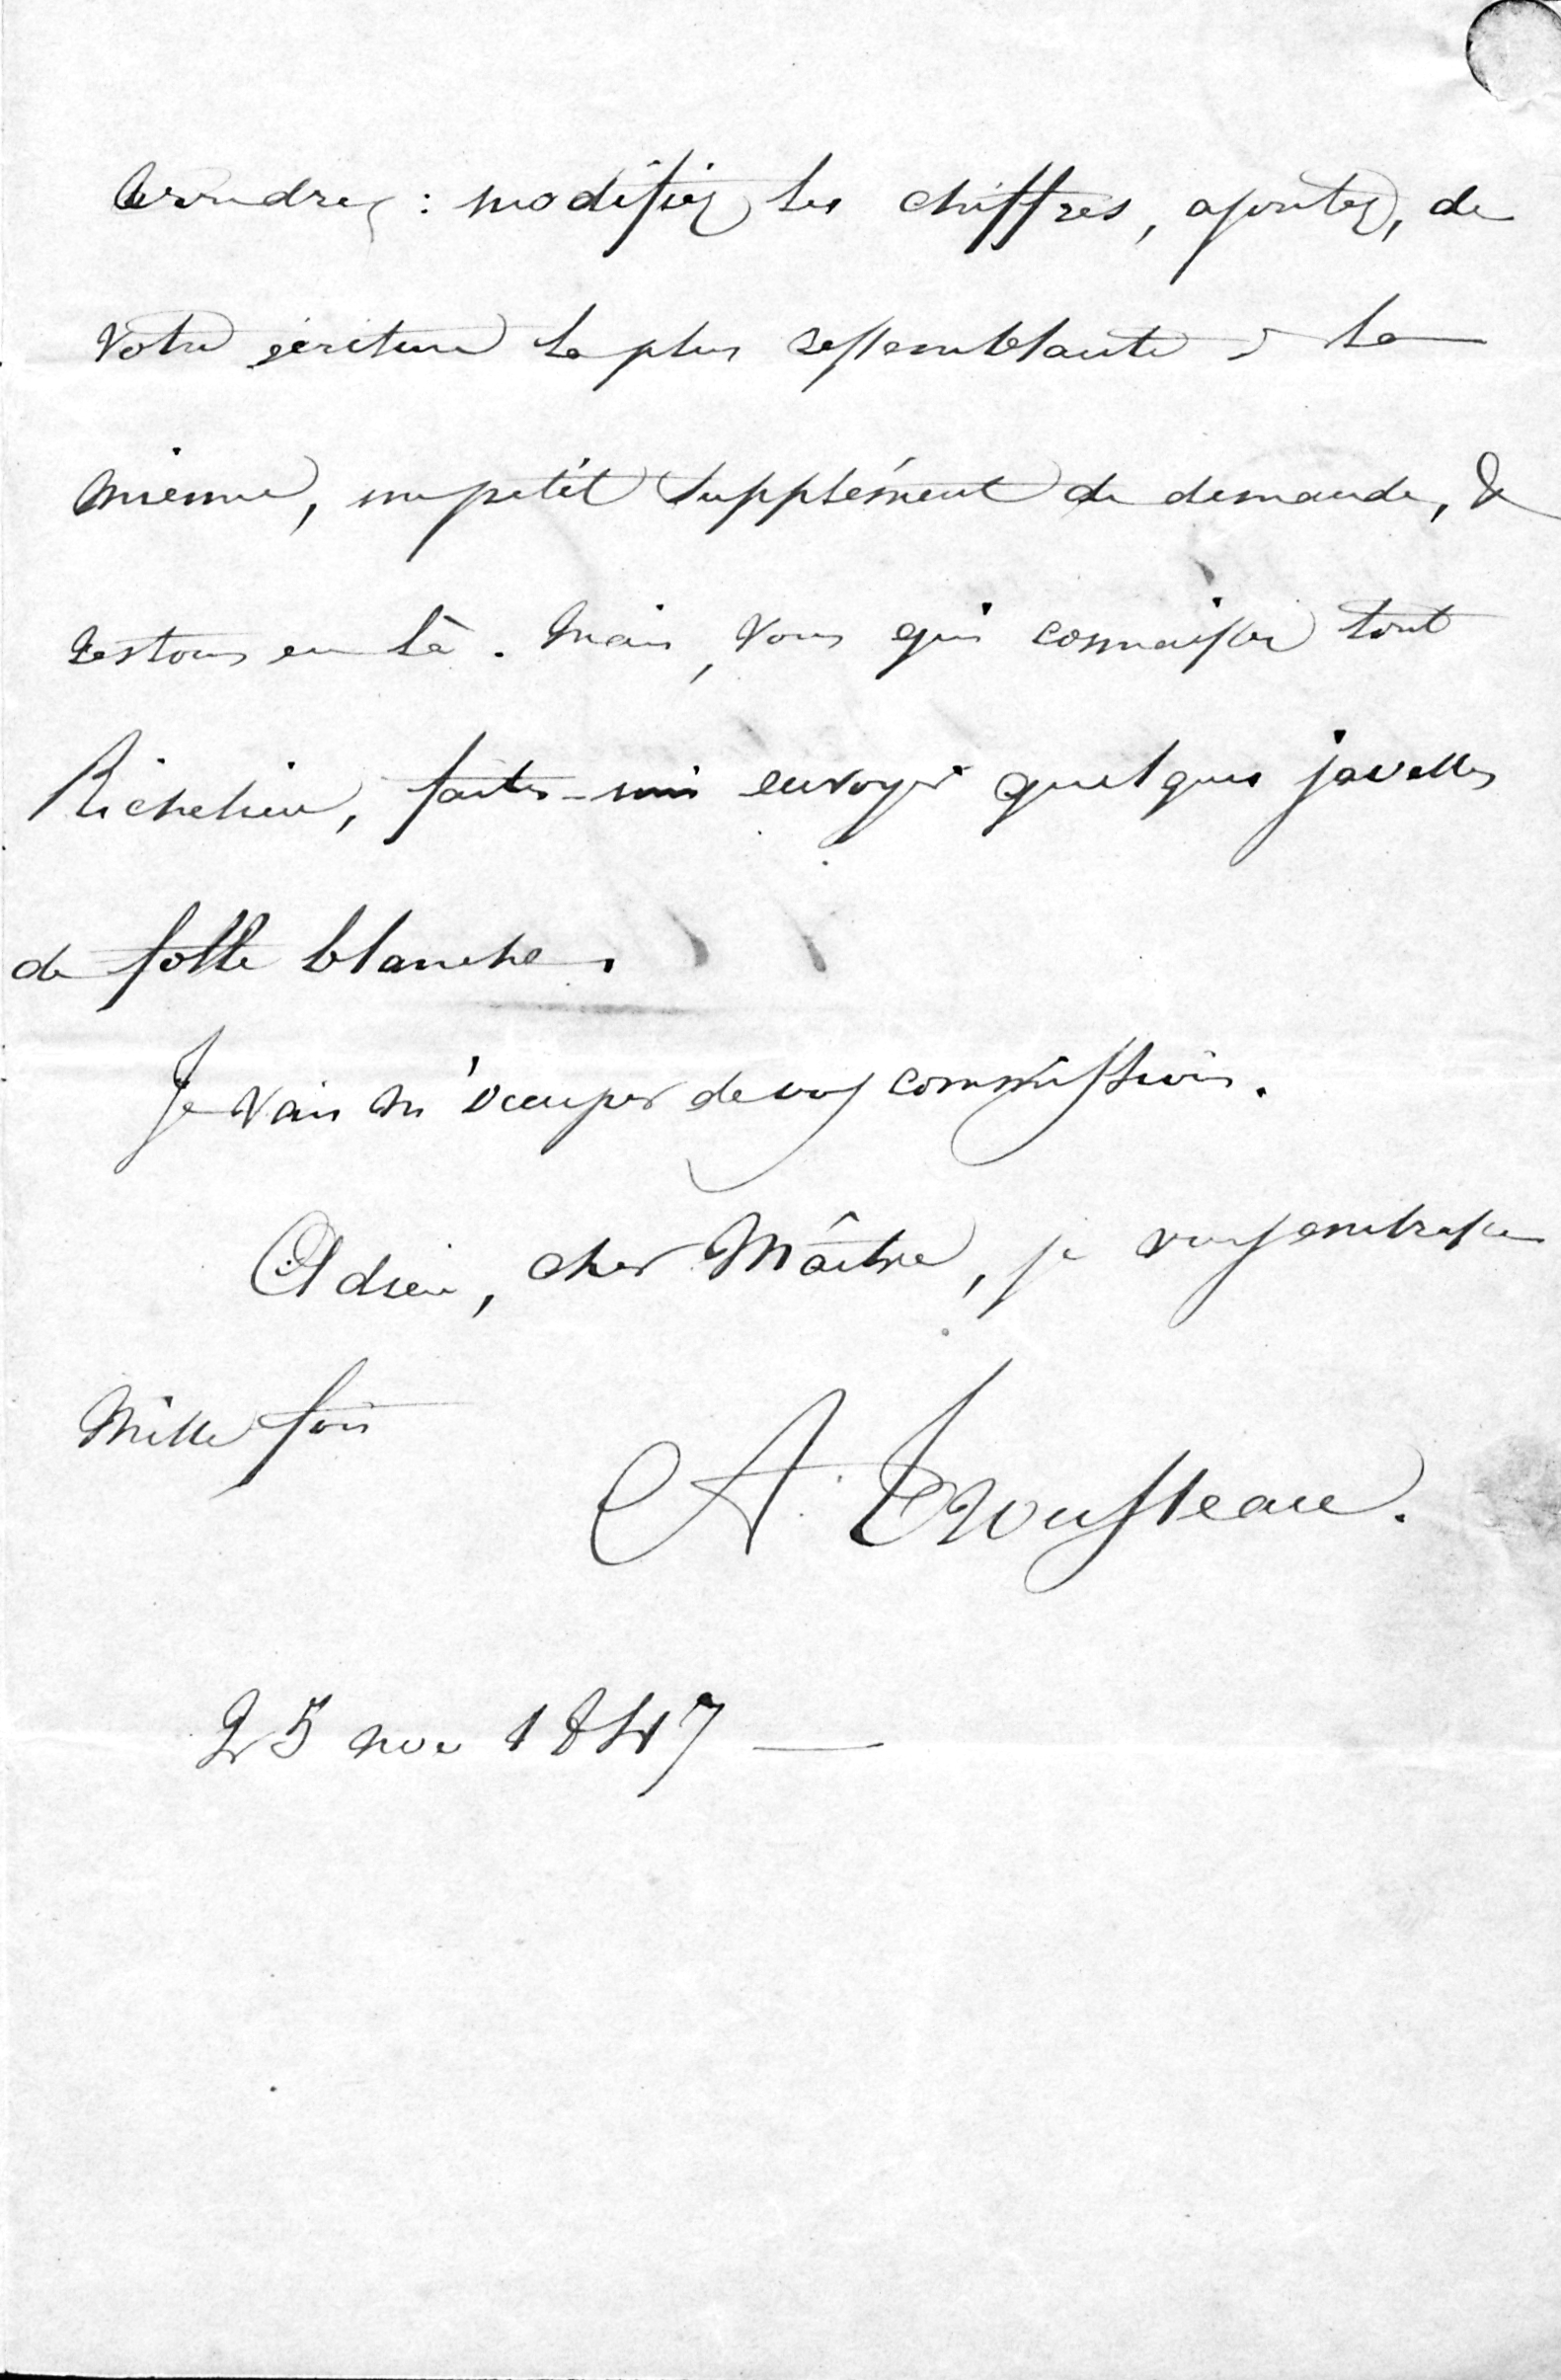 voudrez : modifiez les chiffres, ajoutez, de
votre écriture la plus ressemblante à la
mienne, un petit supplément de demande, &
restons en là. Mais, vous qui connaissez tout
Richelieu, faites-moi envoyer quelques javelles
de folle blanche.
Je vais m'occuper de vos commissions.
Adieu, cher Maître, je vous embrasse
mille fois
A. Trousseau.
25 nov 1847 —